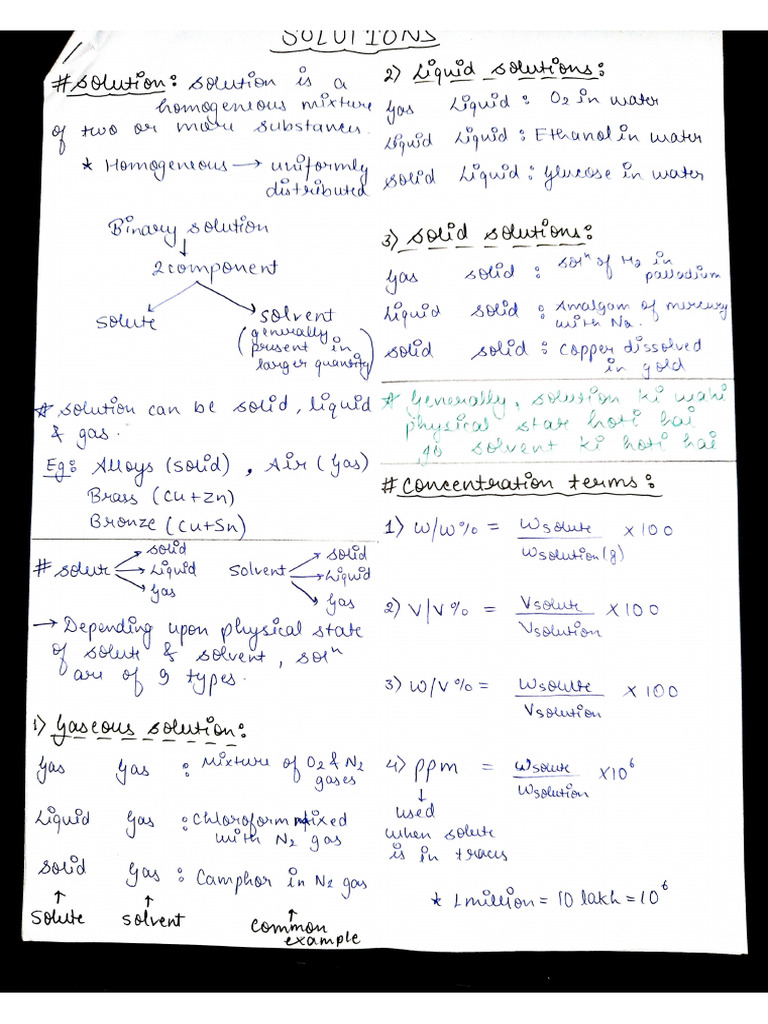 SOLUTIONS
# Solution: Solution is a
homogeneous mixture
of two or more substances.
* Homogeneous → uniformly
distributed
Binary solution
↓
2 component
Solute
Solvent
(generally
present in
larger quantity)
# Solution can be solid, liquid
& gas.
Eg: Alloys (solid), Air (Gas)
Brass (Cu+Zn)
Bronze (Cu+Sn)
# Solute → Solid
→ Liquid
→ Gas
Solvent → Solid
→ Liquid
→ Gas
→ Depending upon physical state
of solute & solvent, solⁿ
are of 9 types.
1) Gaseous solution:
Gas Gas : Mixture of O2 & N2
gases
Liquid Gas : Chloroform mixed
with N2 gas
Solid Gas : Camphor in N2 gas
↑ ↑ ↑
Solute Solvent Common
example
2) Liquid solutions:
Gas Liquid : O2 in water
Liquid Liquid : Ethanol in water
Solid Liquid : Glucose in water
3) Solid solutions:
Gas Solid : Solⁿ of H2 in
palladium
Liquid Solid : Amalgam of mercury
with Na.
Solid Solid : Copper dissolved
in gold
# Generally, solution ki wahi
physical stat hoti hai
jo solvent ki hoti hai
# Concentration terms:
1) W/W% = Wsolute / Wsolution(g) × 100
2) V/V% = Vsolute / Vsolution × 100
3) W/V% = Wsolute / Vsolution × 100
4) ppm = Wsolute / Wsolution × 10⁶
↓
used
when solute
is in traces
* 1 million = 10 lakh = 10⁶